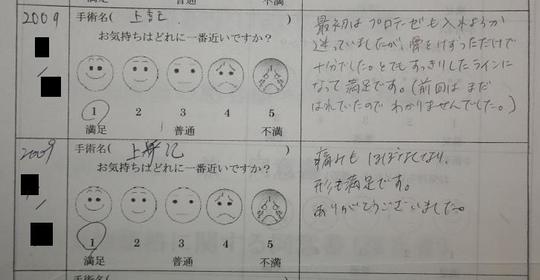 2009
手術名( 上記 )
お気持ちはどれに一番近いですか?
1 2 3 4 5
満足 普通 不満
最初は プロテーゼも入れようか
迷っていましたが、骨をけずっただけで
十分でした。とてもすっきりしたラインに
なって満足です。(前回は まだ
はれていたので わかりませんでした。)
2009
手術名( 上記 )
お気持ちはどれに一番近いですか?
1 2 3 4 5
満足 普通 不満
痛みも ほぼなくなり、
形も満足です。
ありがとうございました。
手術名(